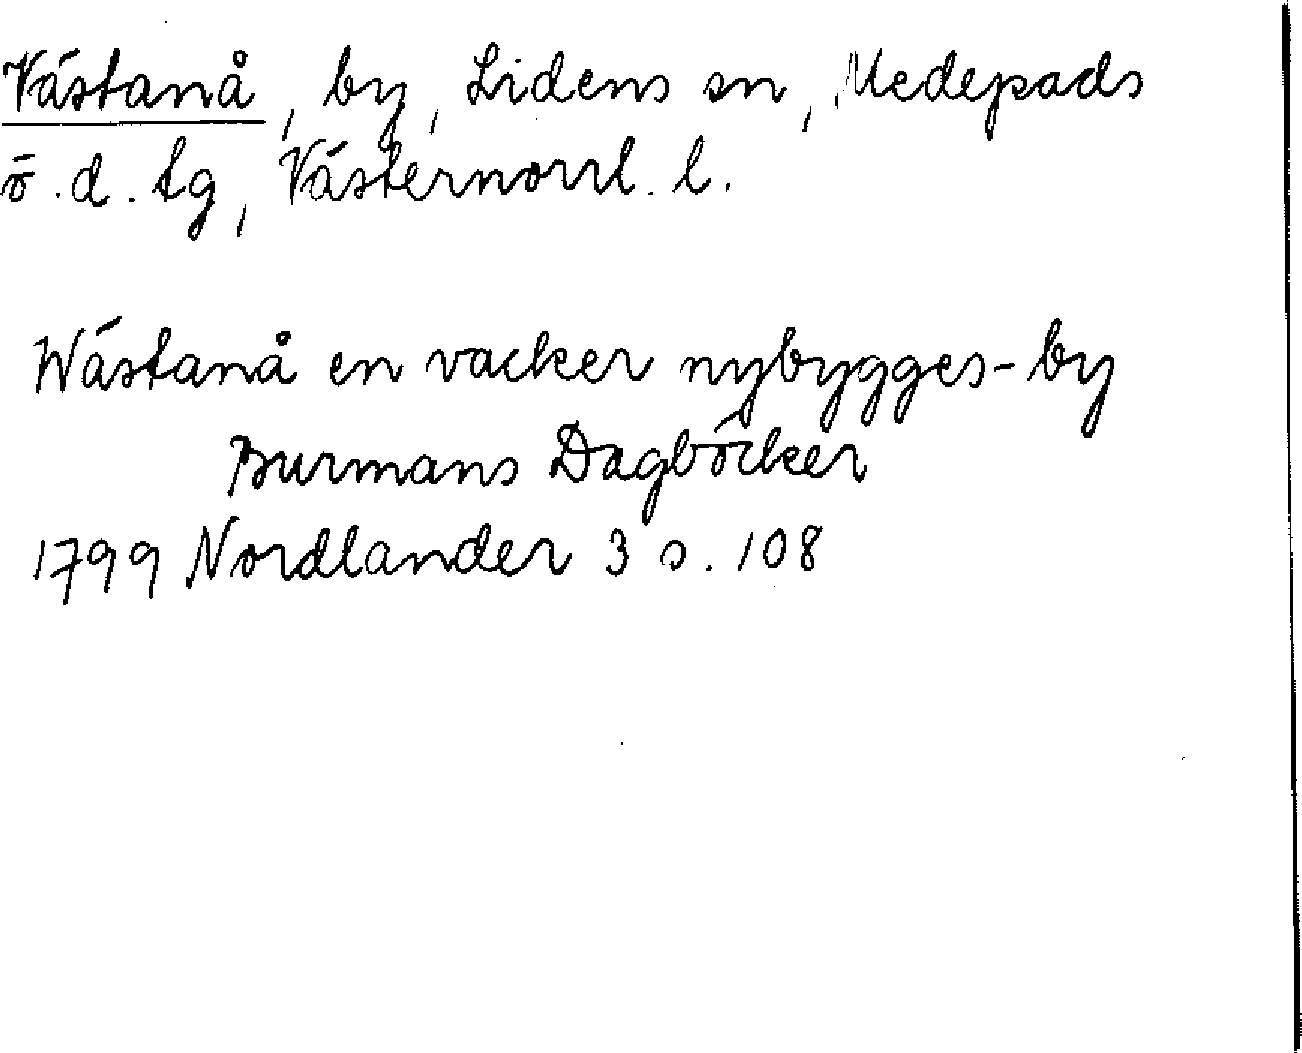 Västanå, by, Lidens sn, Medepads
ö.d.tg, Västernorrl. l.
Wästanå en vacker nybygges-by
Burmans Dagböcker
1799 Nordlander 3 s. 108